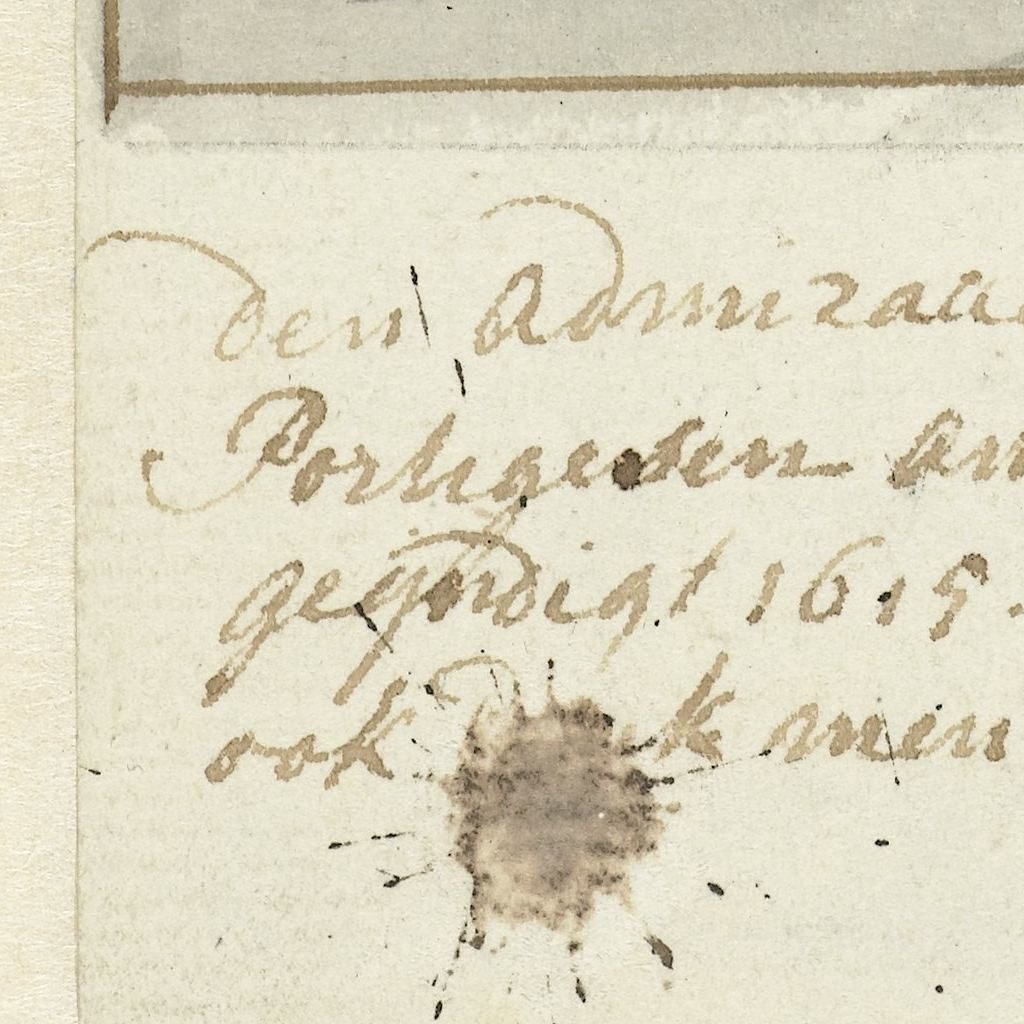 den Admiraa
Portigesen an
geyndigt 1615.
ook k men